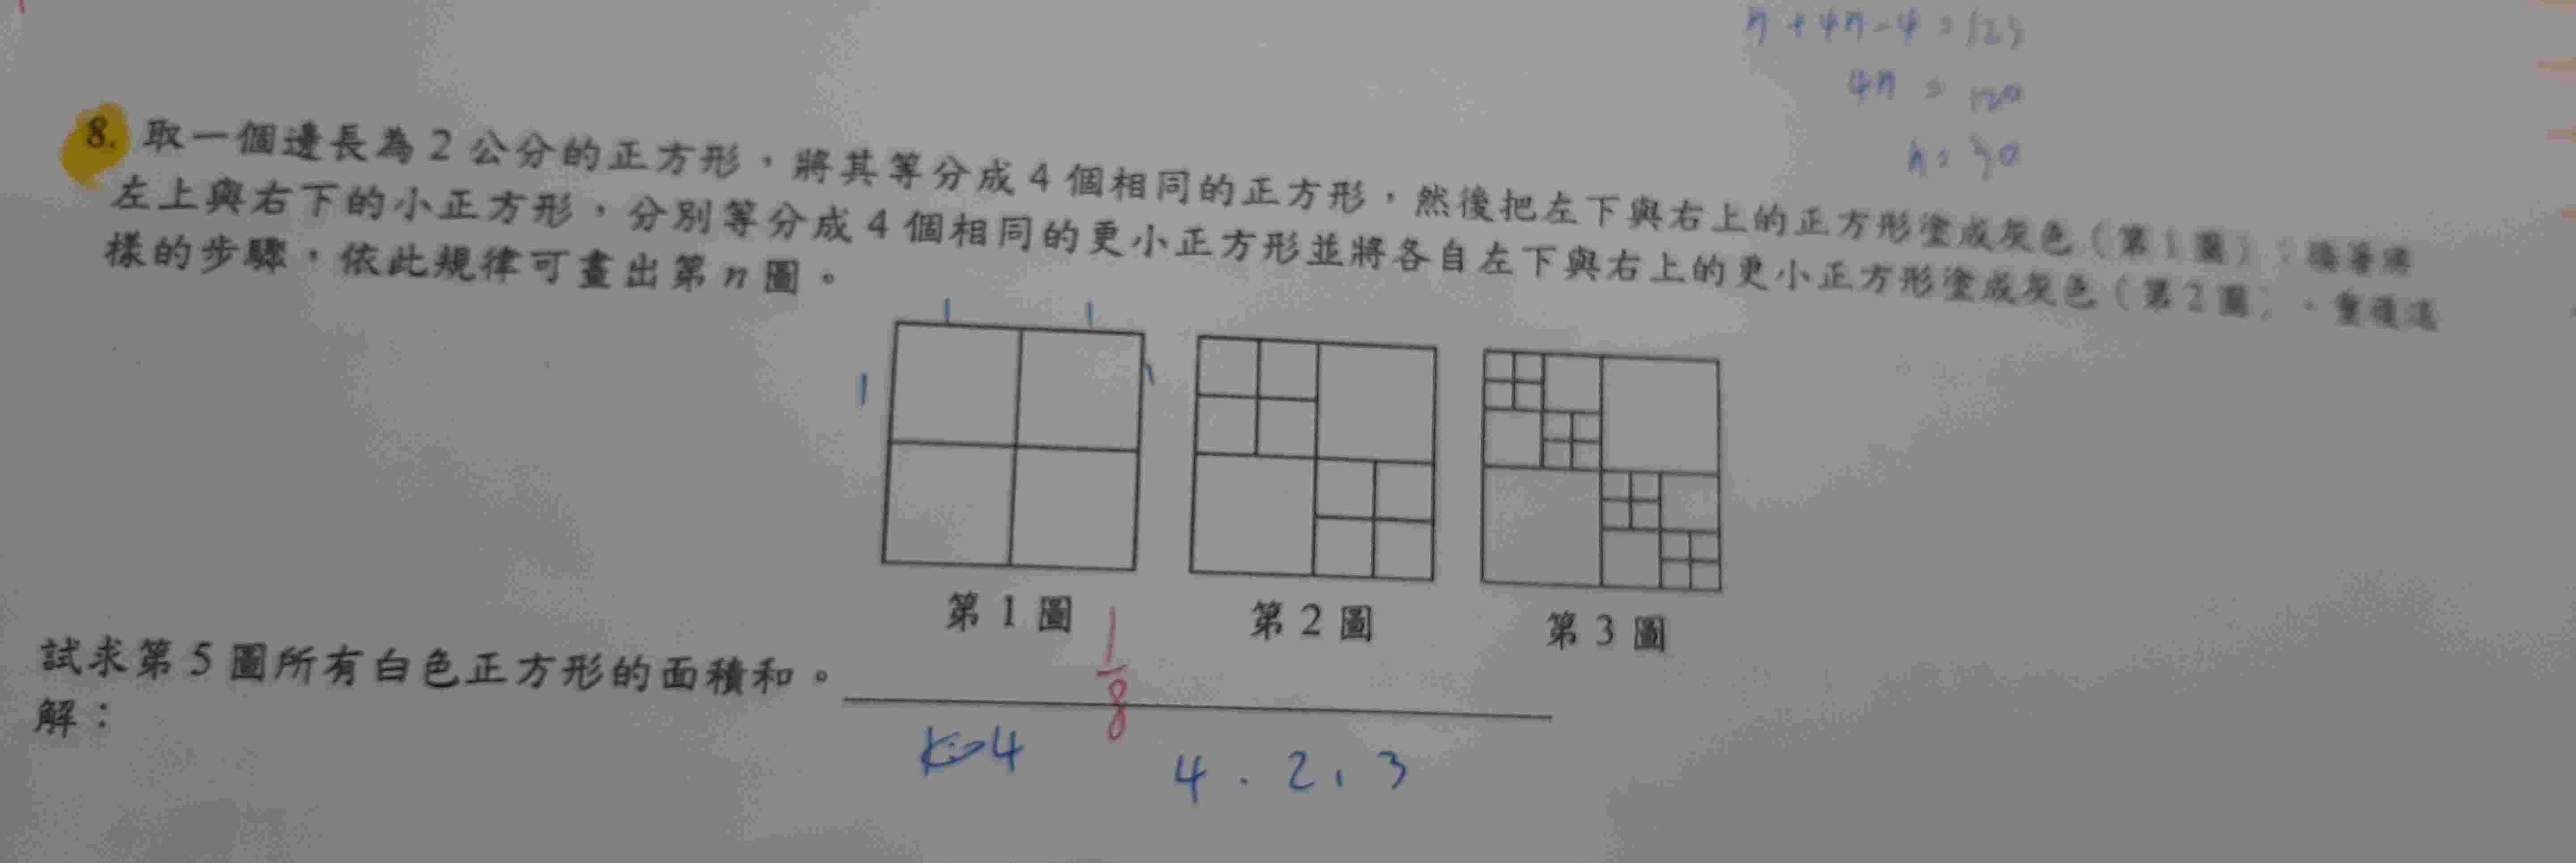 n + 4n - 4 = 123
4n = 120
n = 30
8. 取一個邊長為 2 公分的正方形，將其等分成 4 個相同的正方形，然後把左下與右上的正方形塗成灰色（第 1 圖）；接著將
左上與右下的小正方形，分別等分成 4 個相同的更小正方形並將各自左下與右上的更小正方形塗成灰色（第 2 圖）。重複這
樣的步驟，依此規律可畫出第 n 圖。
1 1
1 1
第 1 圖 第 2 圖 第 3 圖
試求第 5 圖所有白色正方形的面積和。 1/8
解：
4 4 . 2 , 3